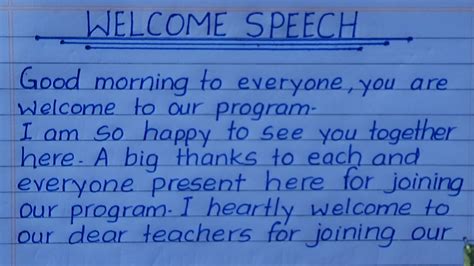 WELCOME SPEECH
Good morning to everyone, you are
welcome to our program.
I am so happy to see you together
here. A big thanks to each and
everyone present here for joining
our program. I heartly welcome to
our dear teachers for joining our